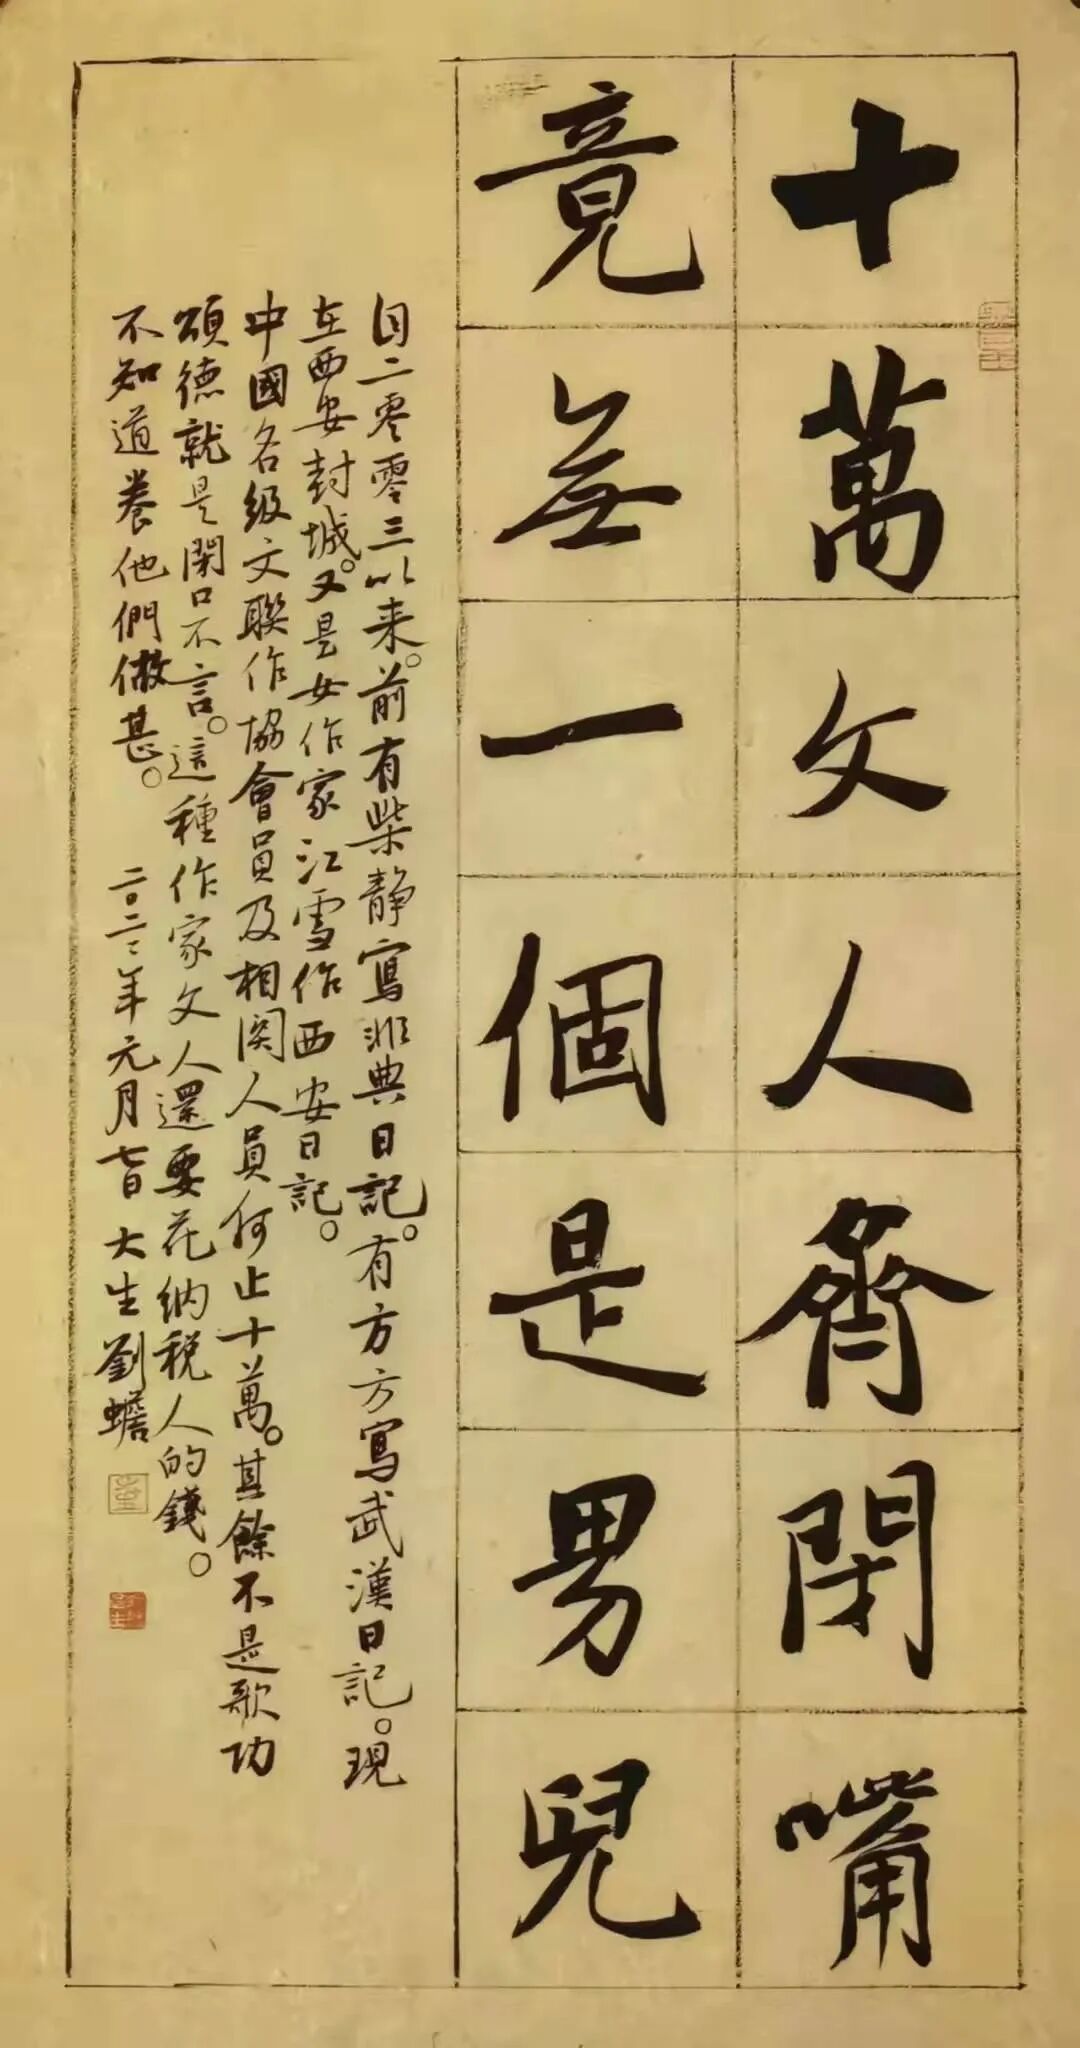 十萬文人齊閉嘴
竟無一個是男兒
自二零零三以来。前有柴静寫非典日記。有方方寫武漢日記。現
在西安封城。又是女作家江雪作西安日記。
中國各级文聯作協會員及相関人員何止十萬。其餘不是歌功
頌德就是閉口不言。這種作家文人還要花纳税人的錢。
不知道養他們做甚。二〇二二年元月七日大生劉蟾